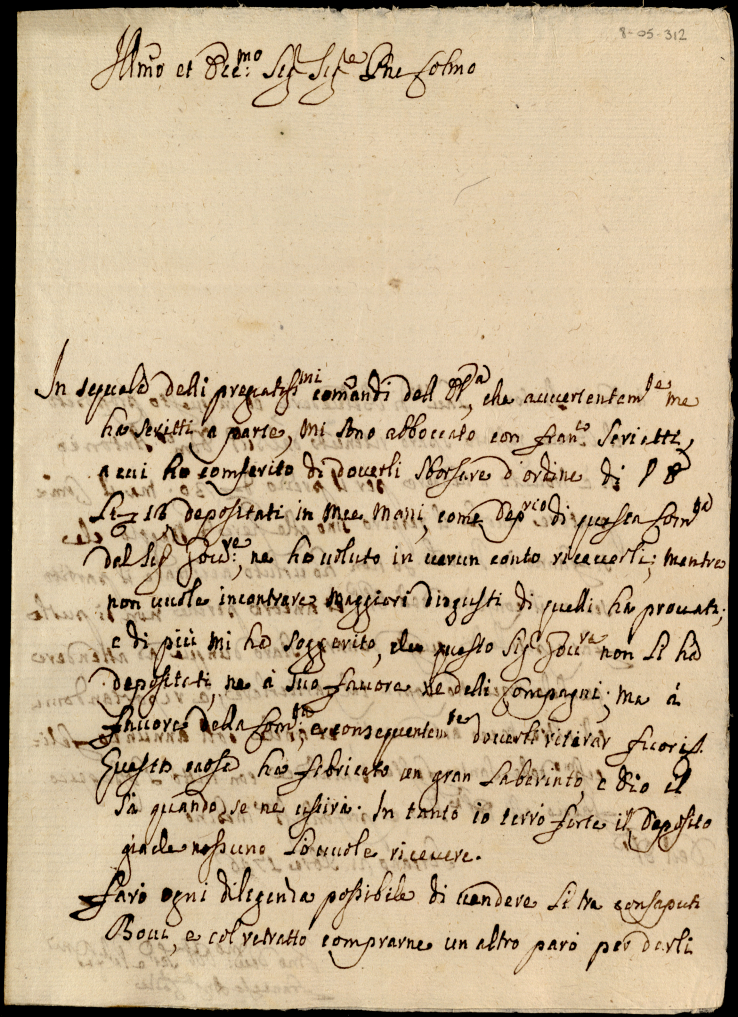 8-05-312
Ill:mo et Ecc:mo Sig.r Sig.re Pne Colmo
In sequela delli pregiatiss.mi comandi dell' che avvertentam.te me
ha scritti a parte, mi sono abboccato con Fran.co Seriatti,
a cui ho conferito di doverli sborsare d'ordine di
depositati in mee mani, come Dep.rio di questa Com.tà
del Sig.r Gov.re, ne ha voluto in verun conto riceverli; mentre
non vuole incontrare maggiori disgusti di quelli ha provati;
e di più mi ha soggerito, che questo Sig.r Gov.re non li hà
depositati, ne à suo favore ne delli Compagni; ma à
favore della Com.tà, e consequentem.te doverli ritirar
Questa cosa ha fabricato un gran Laberinto, e Dio il
sà quando se ne uscirà. In tanto io terrò forte il Deposito
giache nessuno lo vuole ricevere.
Farò ogni diligenza possibile di vendere li tre consaputi
Bovi, e col retratto comprarne un altro paro per darli